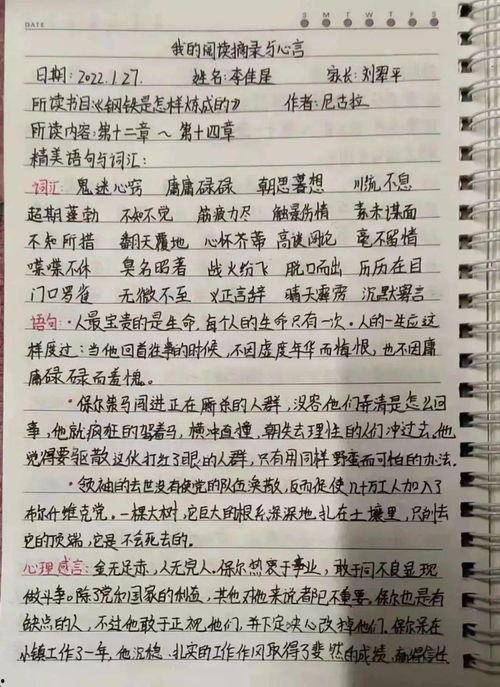 DATE
S M T W T F S
我的阅读摘录与心言
日期：2022.1.27. 姓名：李佳星 家长：刘翠平
所读书目《钢铁是怎样炼成的》 作者：尼古拉
所读内容：第十二章 ～ 第十四章
精美语句与词汇：
词汇：鬼迷心窍 庸庸碌碌 朝思暮想 川流不息
超期蓬勃 不知不觉 筋疲力尽 触景伤情 素未谋面
不知所措 翻天覆地 心怀芥蒂 高谈阔论 毫不留情
喋喋不休 臭名昭著 战火纷飞 脱口而出 历历在目
门口罗雀 无微不至 义正言辞 晴天霹雳 沉默寡言
语句：·人最宝贵的是生命，每个人的生命只有一次。人的一生应这
样度过：当他回首往事的时候，不因虚度年华而悔恨，也不因庸
庸碌碌而羞愧。
·保尔策马闯进正在厮杀的人群，没容他们弄清是怎么回
事，他就疯狂的驾着马，横冲直撞，朝失去理性的人们冲过去。他
觉得要驱散这伙打红了眼的人群，只有用同样野蛮而可怕的办法。
·领袖的去世没有使党的队伍涣散，反而促使几十万工人加入了
布尔什维克党。一棵大树，它巨大的根系深深地扎在土壤里，只削去
它的顶端，它是不会死去的。
心理感言：金无足赤，人无完人。保尔热衷于事业，敢于同不良显现
做斗争。除了党和国家的利益，其他对他来说都已不重要。保尔也是有
缺点的人，不过他敢于正视他们，并下定决心改掉他们。保尔呆在
小镇工作了一年，他沉稳、扎实的工作作风取得了斐然的成绩，赢得信任